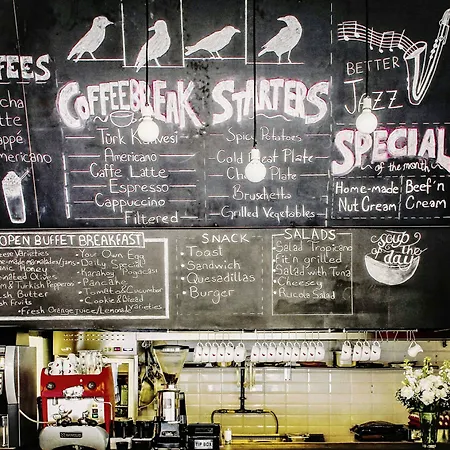 BETTER
JAZZ
COFFEEBREAK
Türk Kahvesi
Americano
Caffe Latte
Espresso
Cappuccino
Filtered
STARTERS
Spicy Potatoes
Cold Meat Plate
Plate
Bruschetta
Grilled Vegetables
SPECIAL
of the month
Home-made
Nut Cream
Beef'n
Cream
OPEN BUFFET BREAKFAST
Varieties
Honey
& Turkish
Butter
Fruits
- Your Own Egg
- Daily Special
- Pancake
- Tomato & Cucumber
- Cookie & Bread
- Fresh Orange Juice / Varieties
SNACK
* Toast
* Sandwich
* Quesadillas
* Burger
SALADS
Salad Tropicano
Fit'n grilled
Salad with Tuna
Cheesey
Rucola Salad
soup
of the
day
TIP BOX